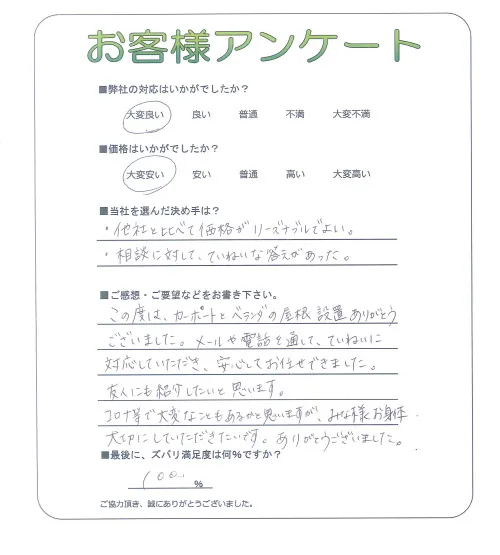 お客様アンケート
■弊社の対応はいかがでしたか？
大変良い 良い 普通 不満 大変不満
■価格はいかがでしたか？
大変安い 安い 普通 高い 大変高い
■当社を選んだ決め手は？
・他社と比べて価格がリーズナブルでよい。
・相談に対して、ていねいな答えがあった。
■ご感想・ご要望などをお書き下さい。
この度は、カーポートとベランダの屋根設置ありがとう
ございました。メールや電話を通して、ていねいに
対応していただき、安心してお任せできました。
友人にも紹介したいと思います。
コロナ等で大変なこともあるかと思いますが、みな様お身体
大切にしていただきたいです。ありがとうございました。
■最後に、ズバリ満足度は何%ですか？
100 %
ご協力頂き、誠にありがとうございました。